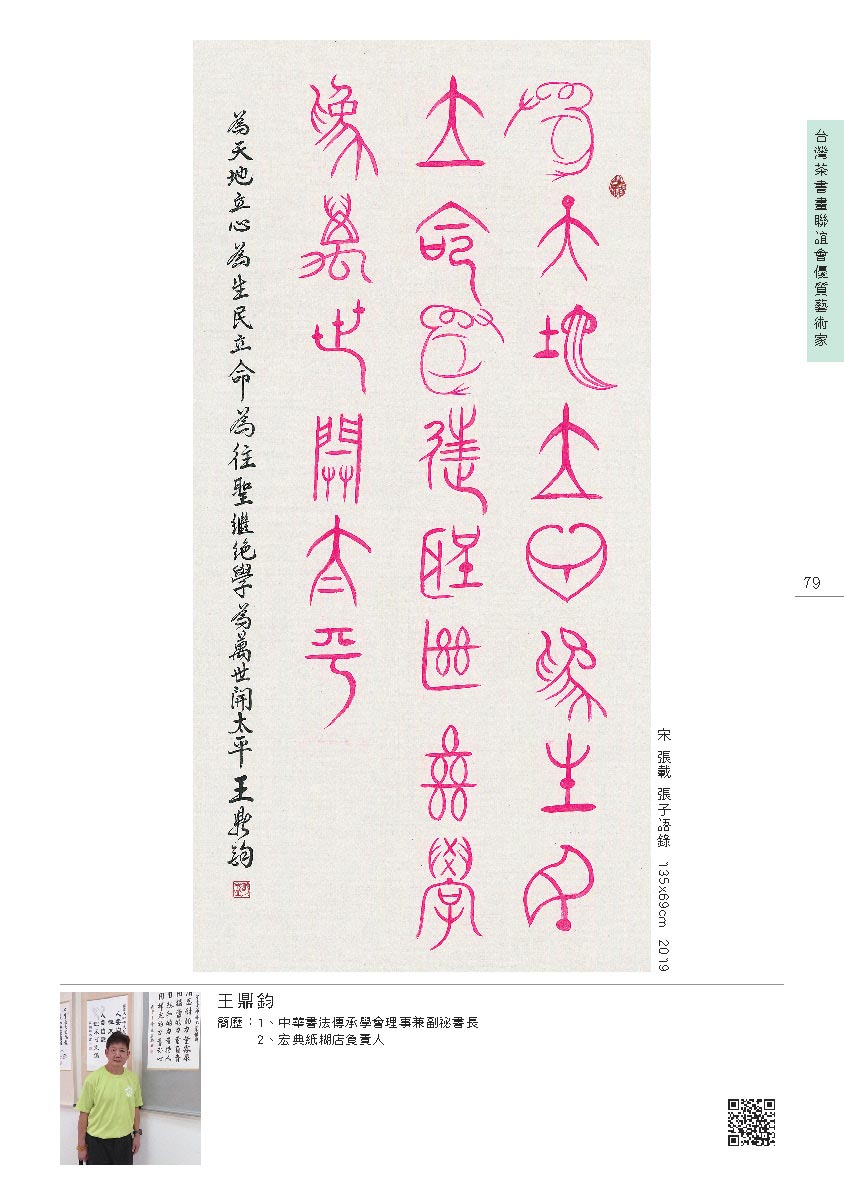 台灣茶書畫聯誼會優質藝術家
為天地立心為生民
立命為往聖繼絕學
為萬世開太平
為天地立心為生民立命為往聖繼絕學為萬世開太平王鼎鈞
79
宋 張載 張子語錄 135x69cm 2019
王鼎鈞
簡歷：1、中華書法傳承學會理事兼副祕書長
2、宏典紙糊店負責人